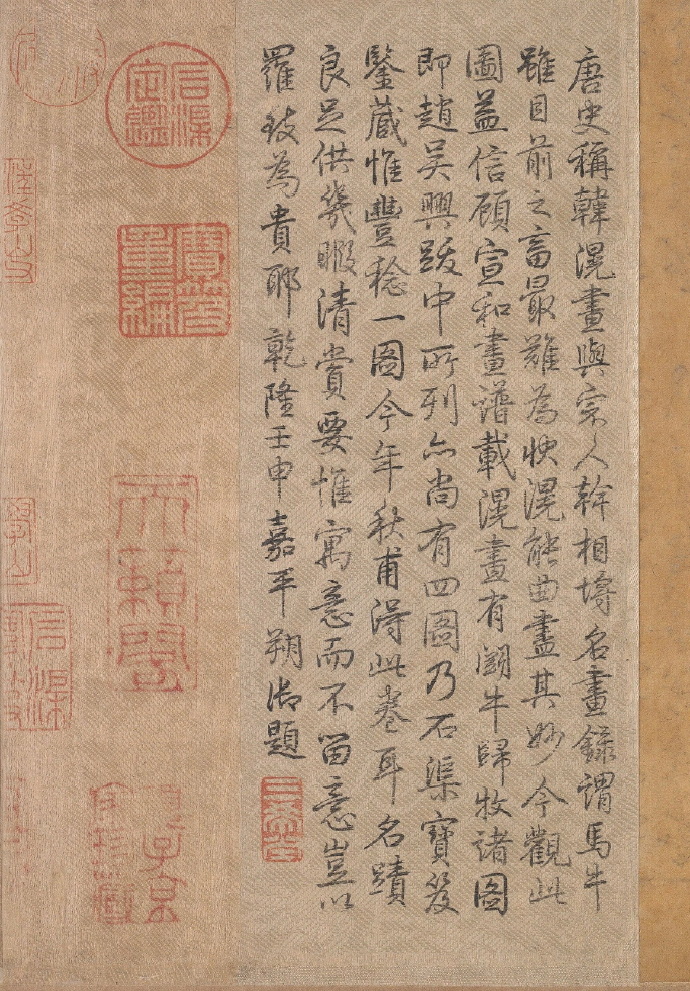 唐史稱韓滉畫與宗人幹相埒名畫錄謂馬牛
雖目前之畜最難為狀滉能曲盡其妙今觀此
圖益信顧宣和畫譜載滉畫有鬬牛歸牧諸圖
即趙吳興跋中所列亦尚有四圖乃石渠寶笈
鑒藏惟豐稔一圖今年秋甫得此卷耳名蹟
良足供幾暇清賞要惟寓意而不留意豈以
羅致為貴耶乾隆壬申嘉平朔御題
三希堂
石渠定鑑
寶笈重編
天籟閣
項子京家珍藏